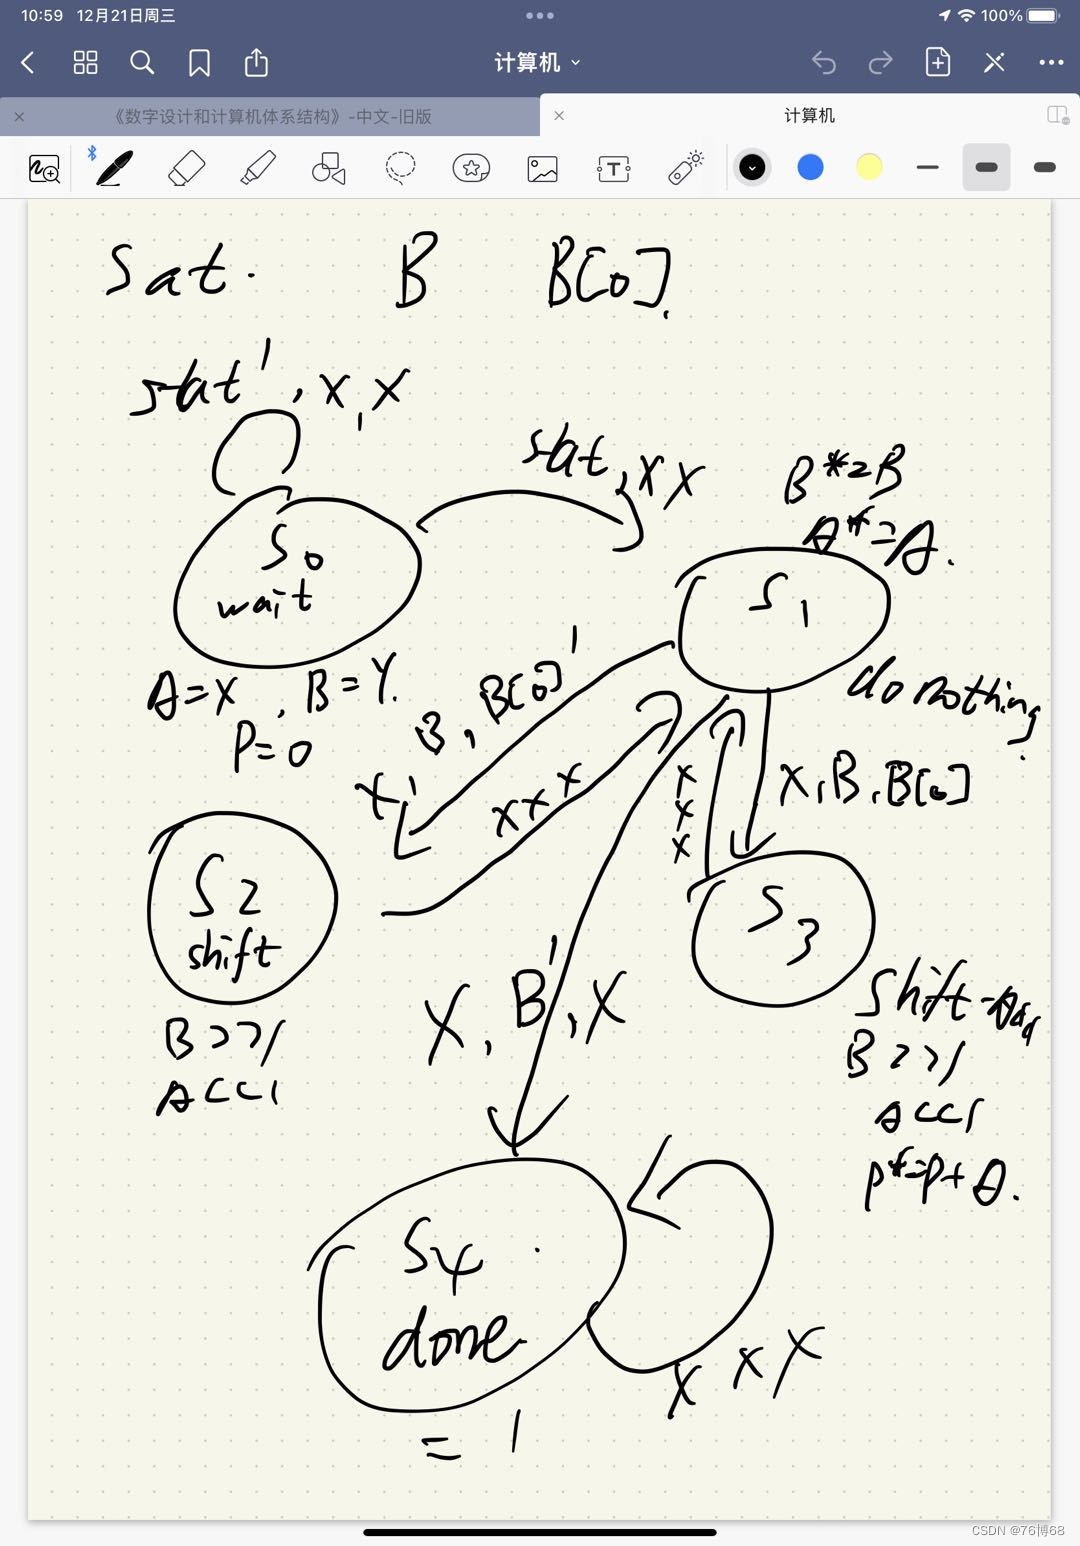 10:59 12月21日周三
100%
计算机
《数字设计和计算机体系结构》-中文-旧版
计算机
Sat. B B[0].
stat', x, x
stat, x x
B*=B
A*=A.
S0
wait
S1
A=X, B=Y.
P=0
do nothing.
X, B, B[0]'
x x x
x
x
x
X, B, B[0]
S2
shift
S3
B>>1
A<<1
X, B', X
Shift-Add
B>>1
A<<1
P*=P+A.
S4
done
= 1
x x x
CSDN @76博68